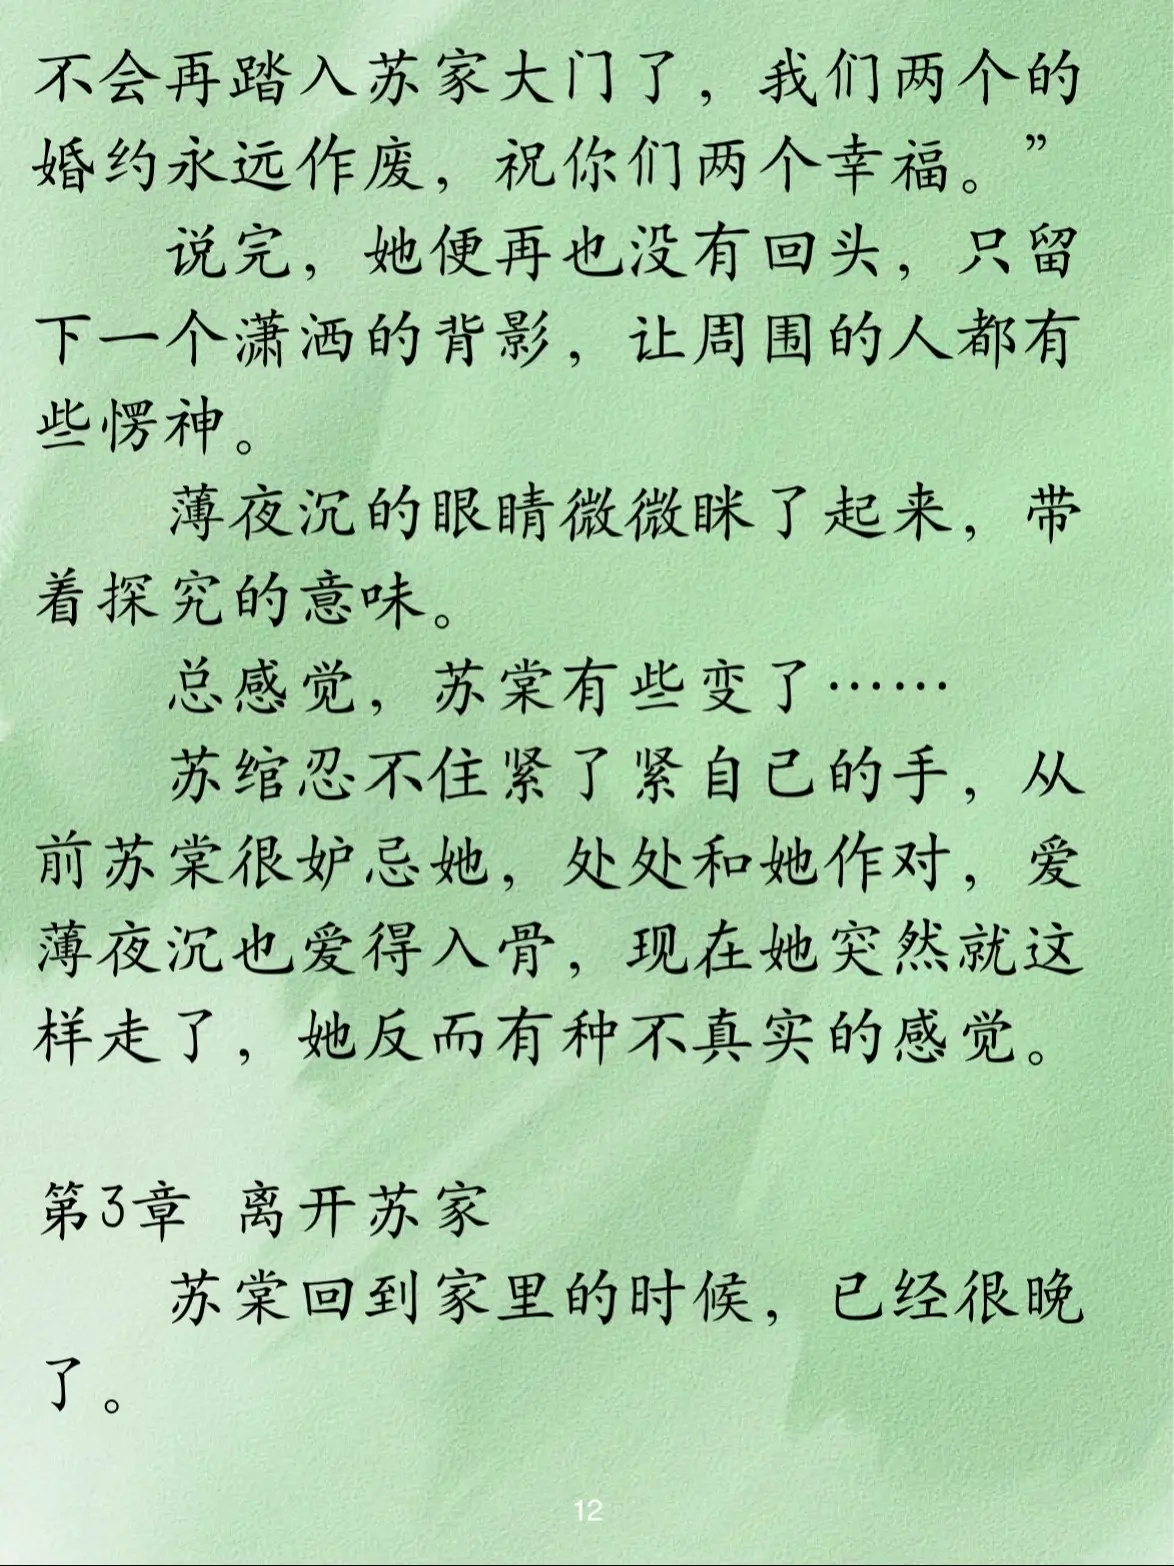 不会再踏入苏家大门了，我们两个的
婚约永远作废，祝你们两个幸福。”
说完，她便再也没有回头，只留
下一个潇洒的背影，让周围的人都有
些愣神。
薄夜沉的眼睛微微眯了起来，带
着探究的意味。
总感觉，苏棠有些变了……
苏绾忍不住紧了紧自己的手，从
前苏棠很妒忌她，处处和她作对，爱
薄夜沉也爱得入骨，现在她突然就这
样走了，她反而有种不真实的感觉。
第3章 离开苏家
苏棠回到家里的时候，已经很晚
了。
12